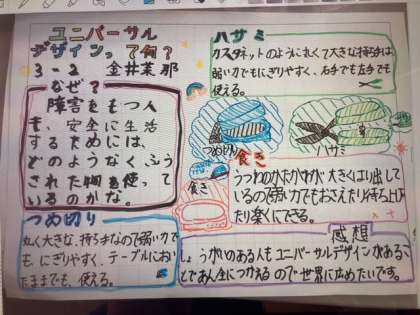 ユニバーサル
デザインって何?
3-2 金井茉那
なぜ?
障害をもつ人
も、安全に生活
するためには、
どのようなくふう
された物を使って
いるのかな。
つめ切り
丸く大きな、持ち手なので弱い力で
も、にぎりやすく、テーブルにおい
たままでも、使える。
ハサミ
カスタネットのように丸くて大きな持ち手は、
弱い力でもにぎりやすく、右手でも左手でも
使える。
つめ切り
ハサミ
食き
食き
うつわのかたがわが、大きくえり出して
いるので弱い力でもおさえたり持ち上げ
たり楽にできる。
感想
しょうがいのある人もユニバーサルデザインがあるこ
とであん全につかえるので世界に広めたいです。